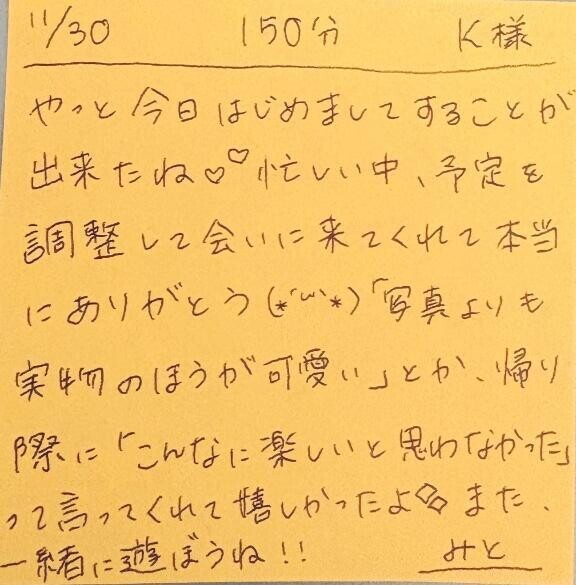 11/30 150分 K様
やっと今日はじめましてすることが
出来たね♡♡忙しい中、予定を
調整して会いに来てくれて本当
にありがとう(*´ω`*)「写真よりも
実物のほうが可愛い」とか、帰り
際に「こんなに楽しいと思わなかった」
って言ってくれて嬉しかったよ◇◇また、
一緒に遊ぼうね!!
みと